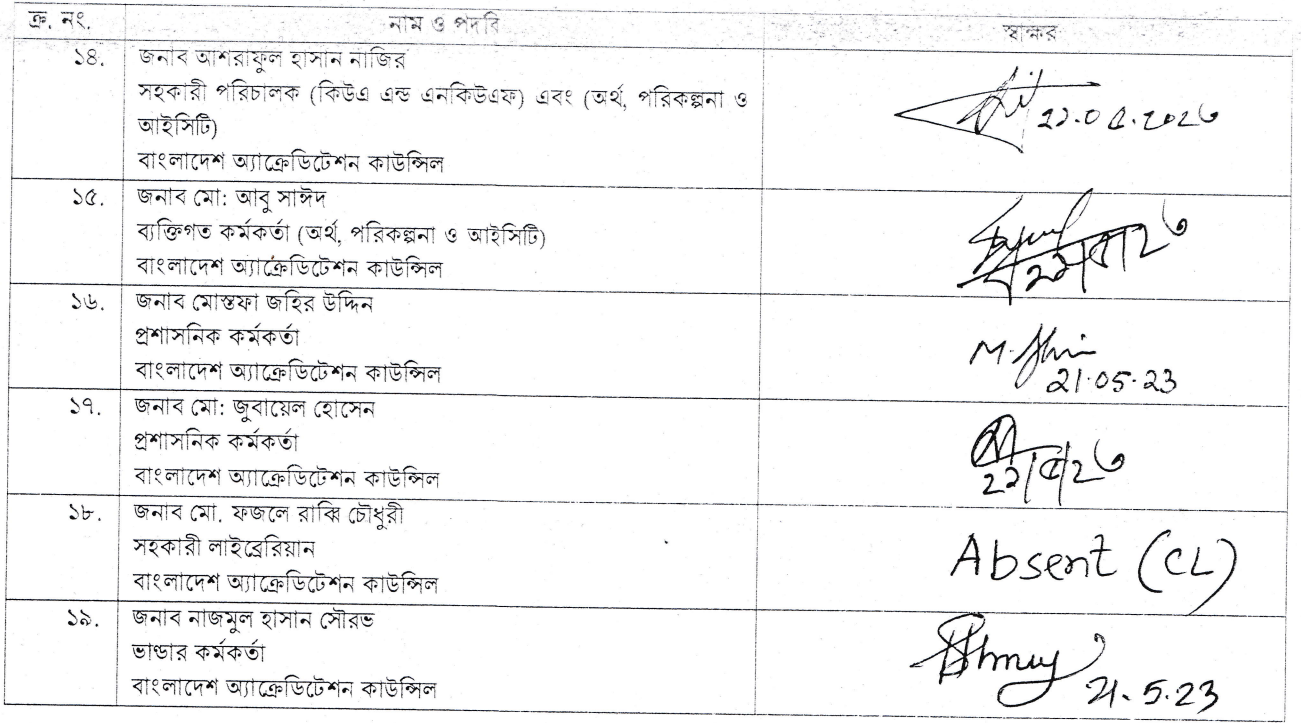 ক্র. নং. নাম ও পদবি স্বাক্ষর
১৪. জনাব আশরাফুল হাসান নাজির
সহকারী পরিচালক (কিউএ এন্ড এনকিউএফ) এবং (অর্থ, পরিকল্পনা ও
আইসিটি)
বাংলাদেশ অ্যাক্রেডিটেশন কাউন্সিল
২১.০৫.২০২৩
১৫. জনাব মো: আবু সাঈদ
ব্যক্তিগত কর্মকর্তা (অর্থ, পরিকল্পনা ও আইসিটি)
বাংলাদেশ অ্যাক্রেডিটেশন কাউন্সিল
২১/৫/২৩
১৬. জনাব মোস্তফা জহির উদ্দিন
প্রশাসনিক কর্মকর্তা
বাংলাদেশ অ্যাক্রেডিটেশন কাউন্সিল
21.05.23
১৭. জনাব মো: জুবায়েল হোসেন
প্রশাসনিক কর্মকর্তা
বাংলাদেশ অ্যাক্রেডিটেশন কাউন্সিল
২১/৫/২৩
১৮. জনাব মো. ফজলে রাব্বি চৌধুরী
সহকারী লাইব্রেরিয়ান
বাংলাদেশ অ্যাক্রেডিটেশন কাউন্সিল
Absent (CL)
১৯. জনাব নাজমুল হাসান সৌরভ
ভান্ডার কর্মকর্তা
বাংলাদেশ অ্যাক্রেডিটেশন কাউন্সিল
21.5.23